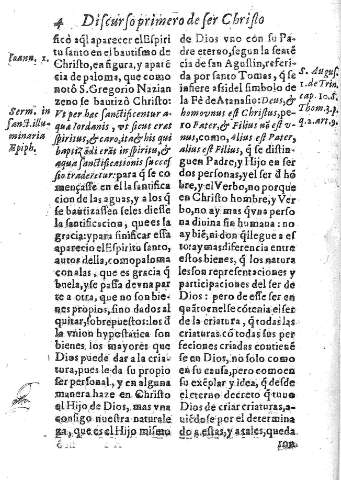 4 Discurso primero de ser Christo
ficò aqì aparecer el Espiri
tu santo en el bautismo de
Christo, en figura, y aparẽ
cia de paloma, que como
notò S. Gregorio Nazian
zeno se bautizò Christo:
Vt per hæc sanctificentur a
qua Iordanis, vt sicut erat
spiritus, & caro, ita & his qui
baptizãdi erãt in spiritu, &
aqua sanctificationis succes
sio traderetur: para q̃ se co
mençasse en el la santifica
cion de las aguas, y a los q̃
se bautizassen se les diesse
la santificacion, que es la
gracia: y para sinificar esta
aparecio el Espiritu santo,
autor della, como paloma
con alas, que es gracia q̃
buela, y se passa de vna par
te a otra, que no son bie-
nes propios, sino dados al
quitar, sobrepuestos: los d̃
la vnion hypostatica son
bienes, los mayores que
Dios puede dar a la cria-
tura, pues le da su propio
ser personal, y en alguna
manera haze en Christo
el Hijo de Dios, mas vna
consigo nuestra naturale
za, que es el Hijo mismo
Ioann. 1.
Serm. in
sanct. illu-
minaria
Epiph.
de Dios vno con su Pa-
dre eterno, segun la sentẽ
cia de san Agustin, referi-
da por santo Tomas, q̃ se
infiere assi del simbolo de
la Fè de Atanasio: Deus, &
homo vnus est Christus, pe-
ro Pater, & Filius nõ est v-
nus, como, Alius est Pater,
alius est Filius, q̃ se distin-
guen Padre, y Hijo en ser
dos personas, y el ser d̃ hõ
bre, y el Verbo, no porque
en Christo hombre, y Ver
bo, no ay mas q̃ vna perso
na diuina sin humana: no
ay biẽ, ni don q̃ llegue a es
to: ay mas diferencia entre
estos bienes, q̃ los natura
les son representaciones y
participaciones del ser de
Dios: pero de esse ser en
quãto en el se cõtenia el ser
de la criatura, q̃ todas las
criaturas cõ todas sus per
feciones criadas contienẽ
se en Dios, no solo como
en su causa, pero como en
su exẽplar y idea, q̃ desde
el eterno decreto q̃ tuuo
Dios de criar criaturas, a-
uiẽdose por el determina
do a estas, y a tales, queda
ron
S. Augus.
1. de Trin.
cap. 10. S.
Thom. 3. p.
q. 2. art. 9.